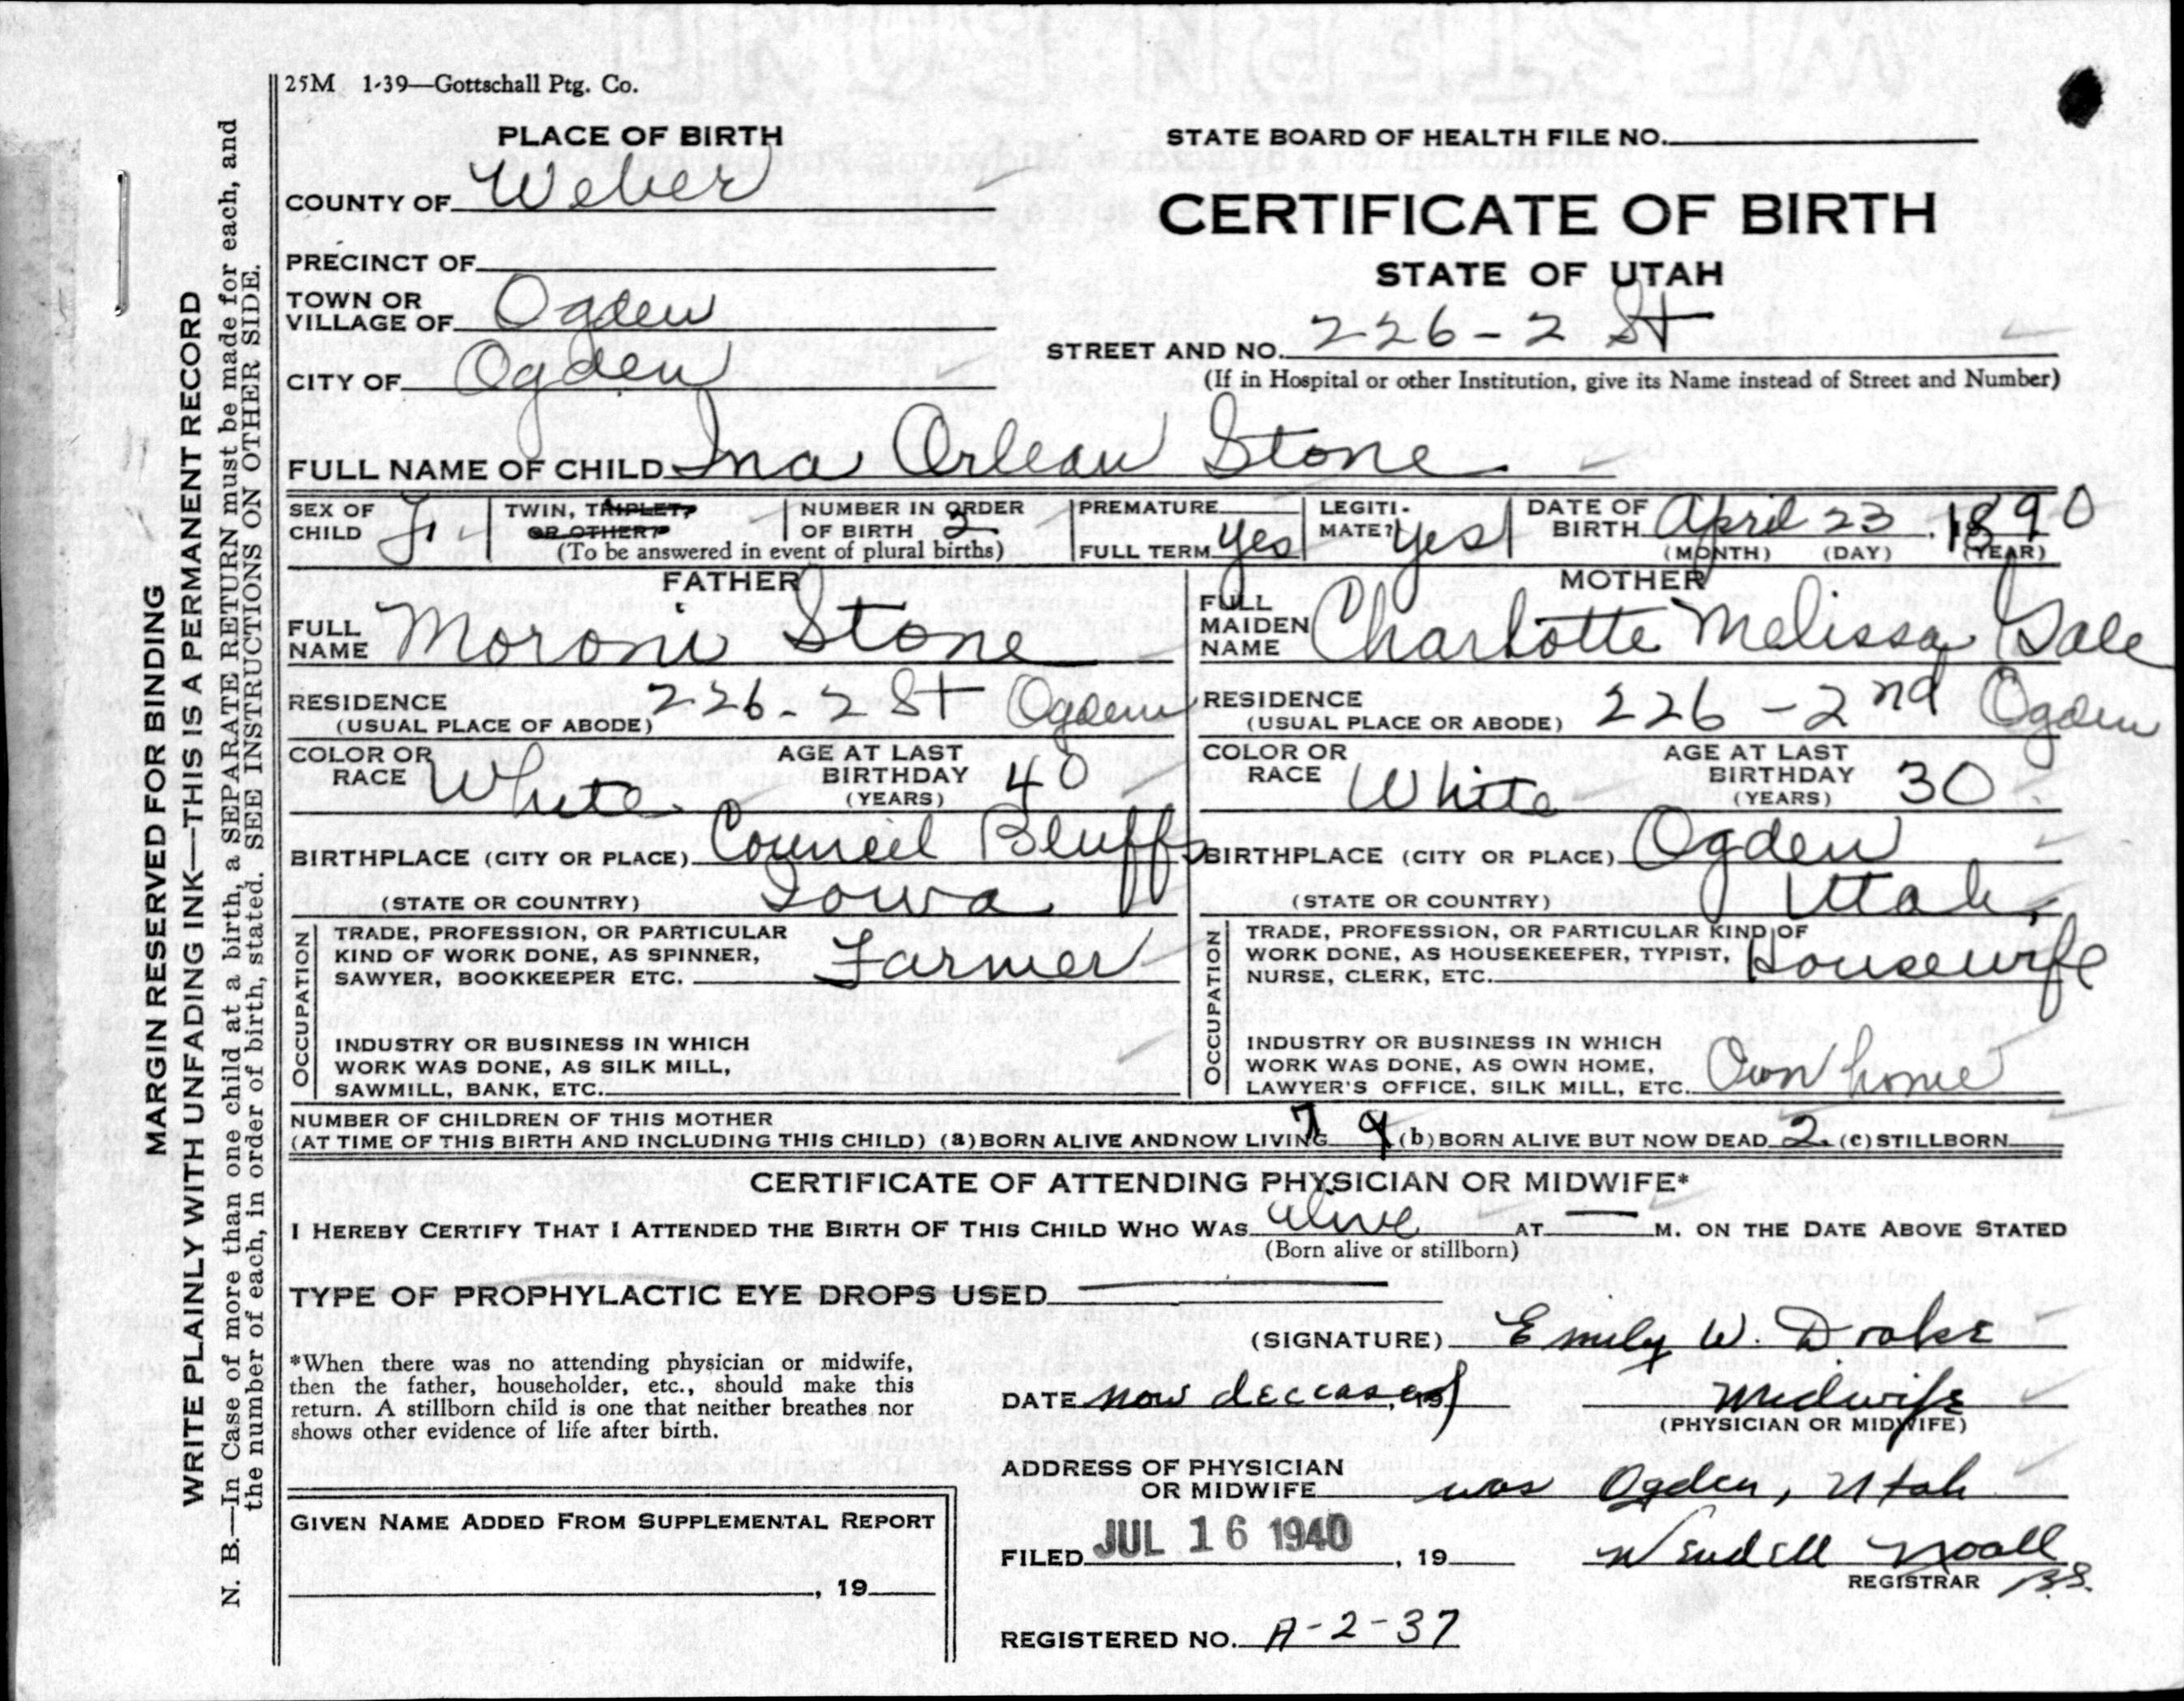 25M 1-39—Gottschall Ptg. Co.
PLACE OF BIRTH
STATE BOARD OF HEALTH FILE NO.
COUNTY OF Weber
CERTIFICATE OF BIRTH
PRECINCT OF
STATE OF UTAH
TOWN OR VILLAGE OF Ogden
STREET AND NO. 226-2 St
CITY OF Ogden
(If in Hospital or other Institution, give its Name instead of Street and Number)
FULL NAME OF CHILD Ina Orlean Stone
SEX OF CHILD F.
TWIN, TRIPLET, OR OTHER?
NUMBER IN ORDER OF BIRTH 2
(To be answered in event of plural births)
PREMATURE
FULL TERM yes
LEGITI-MATE? yes
DATE OF BIRTH April 23, 1890
(MONTH) (DAY) (YEAR)
FATHER
FULL NAME Moroni Stone
RESIDENCE (USUAL PLACE OF ABODE) 226-2 St Ogden
COLOR OR RACE White
AGE AT LAST BIRTHDAY (YEARS) 40
BIRTHPLACE (CITY OR PLACE) Council Bluffs
(STATE OR COUNTRY) Iowa
OCCUPATION
TRADE, PROFESSION, OR PARTICULAR
KIND OF WORK DONE, AS SPINNER,
SAWYER, BOOKKEEPER ETC. Farmer
INDUSTRY OR BUSINESS IN WHICH
WORK WAS DONE, AS SILK MILL,
SAWMILL, BANK, ETC.
MOTHER
FULL MAIDEN NAME Charlotte Melissa Gale
RESIDENCE (USUAL PLACE OR ABODE) 226-2nd Ogden
COLOR OR RACE White
AGE AT LAST BIRTHDAY (YEARS) 30
BIRTHPLACE (CITY OR PLACE) Ogden
(STATE OR COUNTRY) Utah
OCCUPATION
TRADE, PROFESSION, OR PARTICULAR KIND OF
WORK DONE, AS HOUSEKEEPER, TYPIST,
NURSE, CLERK, ETC. Housewife
INDUSTRY OR BUSINESS IN WHICH
WORK WAS DONE, AS OWN HOME,
LAWYER'S OFFICE, SILK MILL, ETC. Own home
NUMBER OF CHILDREN OF THIS MOTHER
(AT TIME OF THIS BIRTH AND INCLUDING THIS CHILD) (a) BORN ALIVE AND NOW LIVING 7 9 (b) BORN ALIVE BUT NOW DEAD 2 (c) STILLBORN
CERTIFICATE OF ATTENDING PHYSICIAN OR MIDWIFE*
I HEREBY CERTIFY THAT I ATTENDED THE BIRTH OF THIS CHILD WHO WAS alive AT — M. ON THE DATE ABOVE STATED
(Born alive or stillborn)
TYPE OF PROPHYLACTIC EYE DROPS USED —
(SIGNATURE) Emily W. Drake
*When there was no attending physician or midwife,
then the father, householder, etc., should make this
return. A stillborn child is one that neither breathes nor
shows other evidence of life after birth.
DATE now deceased, 19
Midwife
(PHYSICIAN OR MIDWIFE)
ADDRESS OF PHYSICIAN OR MIDWIFE was Ogden, Utah
GIVEN NAME ADDED FROM SUPPLEMENTAL REPORT
, 19
FILED JUL 16 1940, 19
Wendell Noall
REGISTRAR B.S.
REGISTERED NO. A-2-37
MARGIN RESERVED FOR BINDING
WRITE PLAINLY WITH UNFADING INK—THIS IS A PERMANENT RECORD
N. B.—In Case of more than one child at a birth, a SEPARATE RETURN must be made for each, and
the number of each, in order of birth, stated. SEE INSTRUCTIONS ON OTHER SIDE.